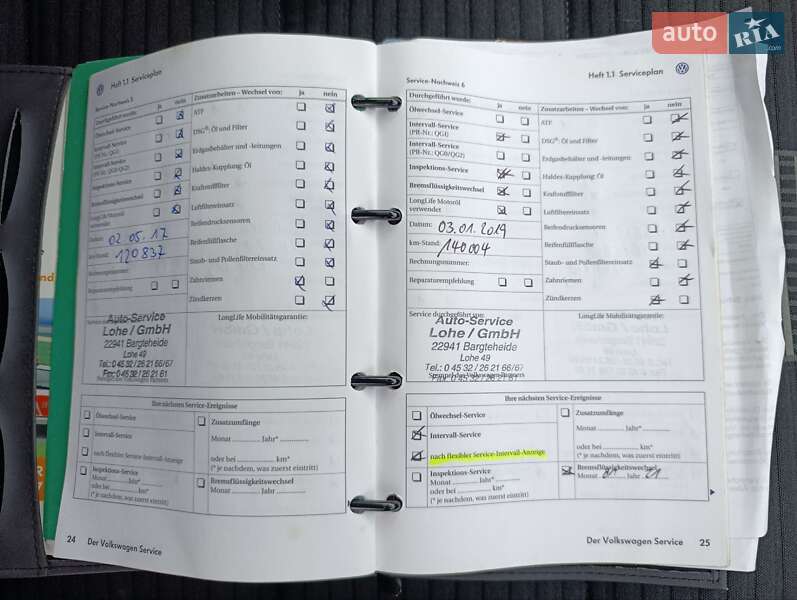 auto RIA.com
Heft 1.1 Serviceplan
Service-Nachweis 5
Durchgeführt wurde: ja nein
Zusatzarbeiten – Wechsel von: ja nein
Ölwechsel-Service
ATF
Intervall-Service
(PR-Nr.: QG1)
DSG®: Öl und Filter
Intervall-Service
(PR-Nr.: QG0/QG2)
Erdgasbehälter und -leitungen
Inspektions-Service
Haldex-Kupplung: Öl
Bremsflüssigkeitswechsel
Kraftstofffilter
LongLife Motoröl
verwendet
Luftfiltereinsatz
Datum: 02.05.17
Reifendrucksensoren
km-Stand: 120837
Reifenfüllflasche
Rechnungsnummer:
Staub- und Pollenfiltereinsatz
Reparaturempfehlung
Zahnriemen
Zündkerzen
Service durchgeführt von:
LongLife Mobilitätsgarantie:
Auto-Service
Lohe / GmbH
22941 Bargteheide
Lohe 49
Tel.: 0 45 32 / 26 21 66/67
Fax: 0 45 32 / 26 21 61
Stempel des Volkswagen Partners
Ihre nächsten Service-Ereignisse
Ölwechsel-Service
Zusatzumfänge
Monat Jahr*
Intervall-Service
oder bei km*
nach flexibler Service-Intervall-Anzeige
(* je nachdem, was zuerst eintritt)
Inspektions-Service
Monat Jahr*
oder bei km*
(* je nachdem, was zuerst eintritt)
Bremsflüssigkeitswechsel
Monat Jahr
24 Der Volkswagen Service
Service-Nachweis 6
Heft 1.1 Serviceplan
Durchgeführt wurde: ja nein
Zusatzarbeiten – Wechsel von: ja nein
Ölwechsel-Service
ATF
Intervall-Service
(PR-Nr.: QG1)
DSG®: Öl und Filter
Intervall-Service
(PR-Nr.: QG0/QG2)
Erdgasbehälter und -leitungen
Inspektions-Service
Haldex-Kupplung: Öl
Bremsflüssigkeitswechsel
Kraftstofffilter
LongLife Motoröl
verwendet
Luftfiltereinsatz
Datum: 03.01.2019
Reifendrucksensoren
km-Stand: 140004
Reifenfüllflasche
Rechnungsnummer:
Staub- und Pollenfiltereinsatz
Reparaturempfehlung
Zahnriemen
Zündkerzen
Service durchgeführt von:
LongLife Mobilitätsgarantie:
Auto-Service
Lohe / GmbH
22941 Bargteheide
Lohe 49
Tel.: 0 45 32 / 26 21 66/67
Fax: 0 45 32 / 26 21 61
Stempel des Volkswagen Partners
Ihre nächsten Service-Ereignisse
Ölwechsel-Service
Zusatzumfänge
Monat Jahr*
Intervall-Service
oder bei km*
nach flexibler Service-Intervall-Anzeige
(* je nachdem, was zuerst eintritt)
Inspektions-Service
Monat Jahr*
oder bei km*
(* je nachdem, was zuerst eintritt)
Bremsflüssigkeitswechsel
Monat 01 Jahr 21
Der Volkswagen Service 25